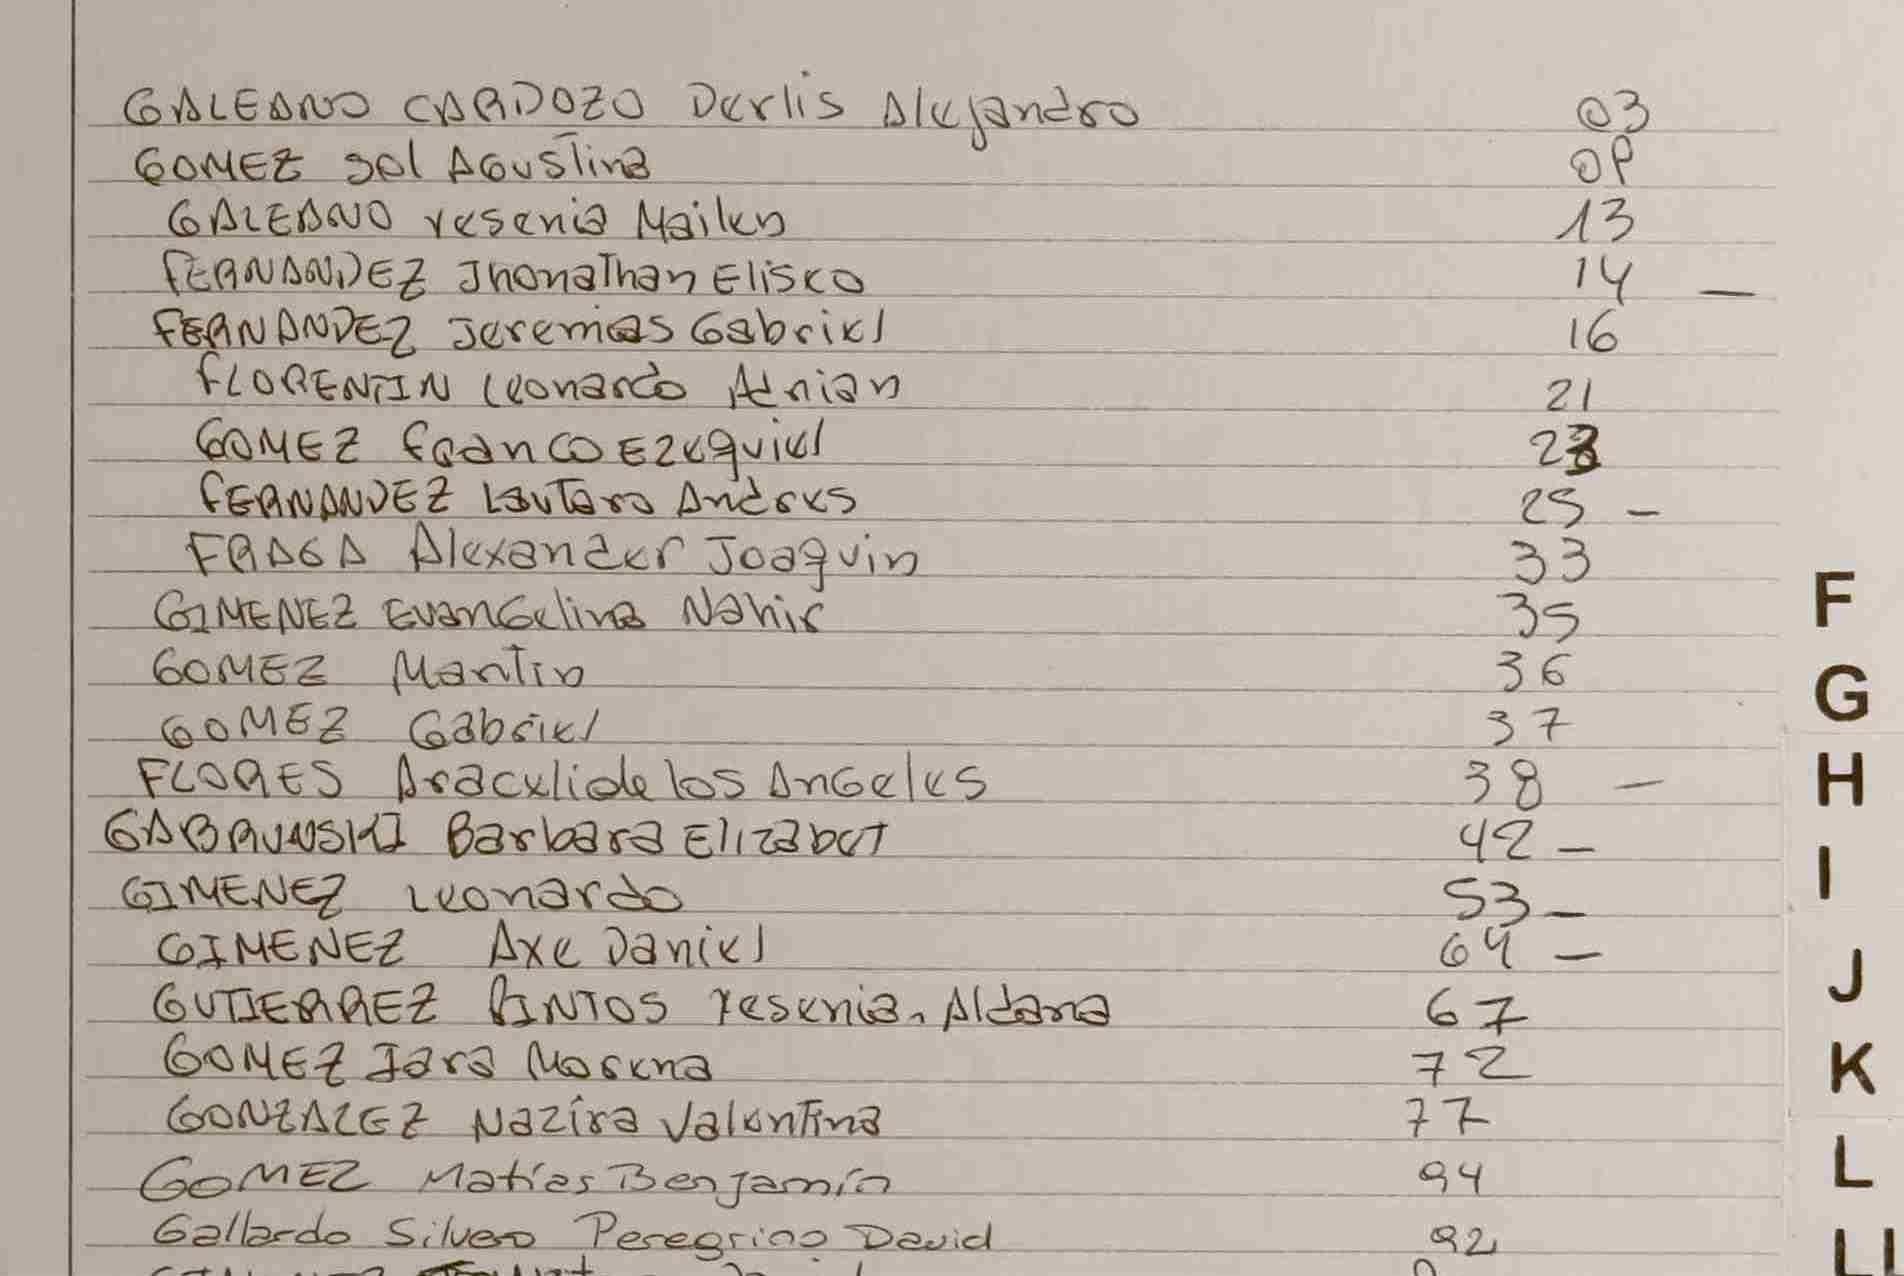 GALEANO CARDOZO Derlis Alejandro 03
GOMEZ Sol Agustina 0P
GALEANO Yesenia Mailen 13
FERNANDEZ Jhonathan Eliseo 14 —
FERNANDEZ Jeremias Gabriel 16
FLORENTIN Leonardo Adrian 21
GOMEZ Franco Ezequiel 23
FERNANDEZ Lautaro Andres 25 —
FRAGA Alexander Joaquin 33
GIMENEZ Evangelina Nahir 35
F
GOMEZ Martin 36
G
GOMEZ Gabriel 37
FLORES Araceli de los Angeles 38 —
H
GABRUNSKI Barbara Elizabet 42 —
GIMENEZ Leonardo 53 —
I
GIMENEZ Axe Daniel 64 —
J
GUTIERREZ PINTOS Yesenia, Aldana 67
GOMEZ Jara Morena 72
K
GONZALEZ Nazira Valentina 77
GOMEZ Matías Benjamín 94
L
Gallardo Silvero Peregrino David 92
LL